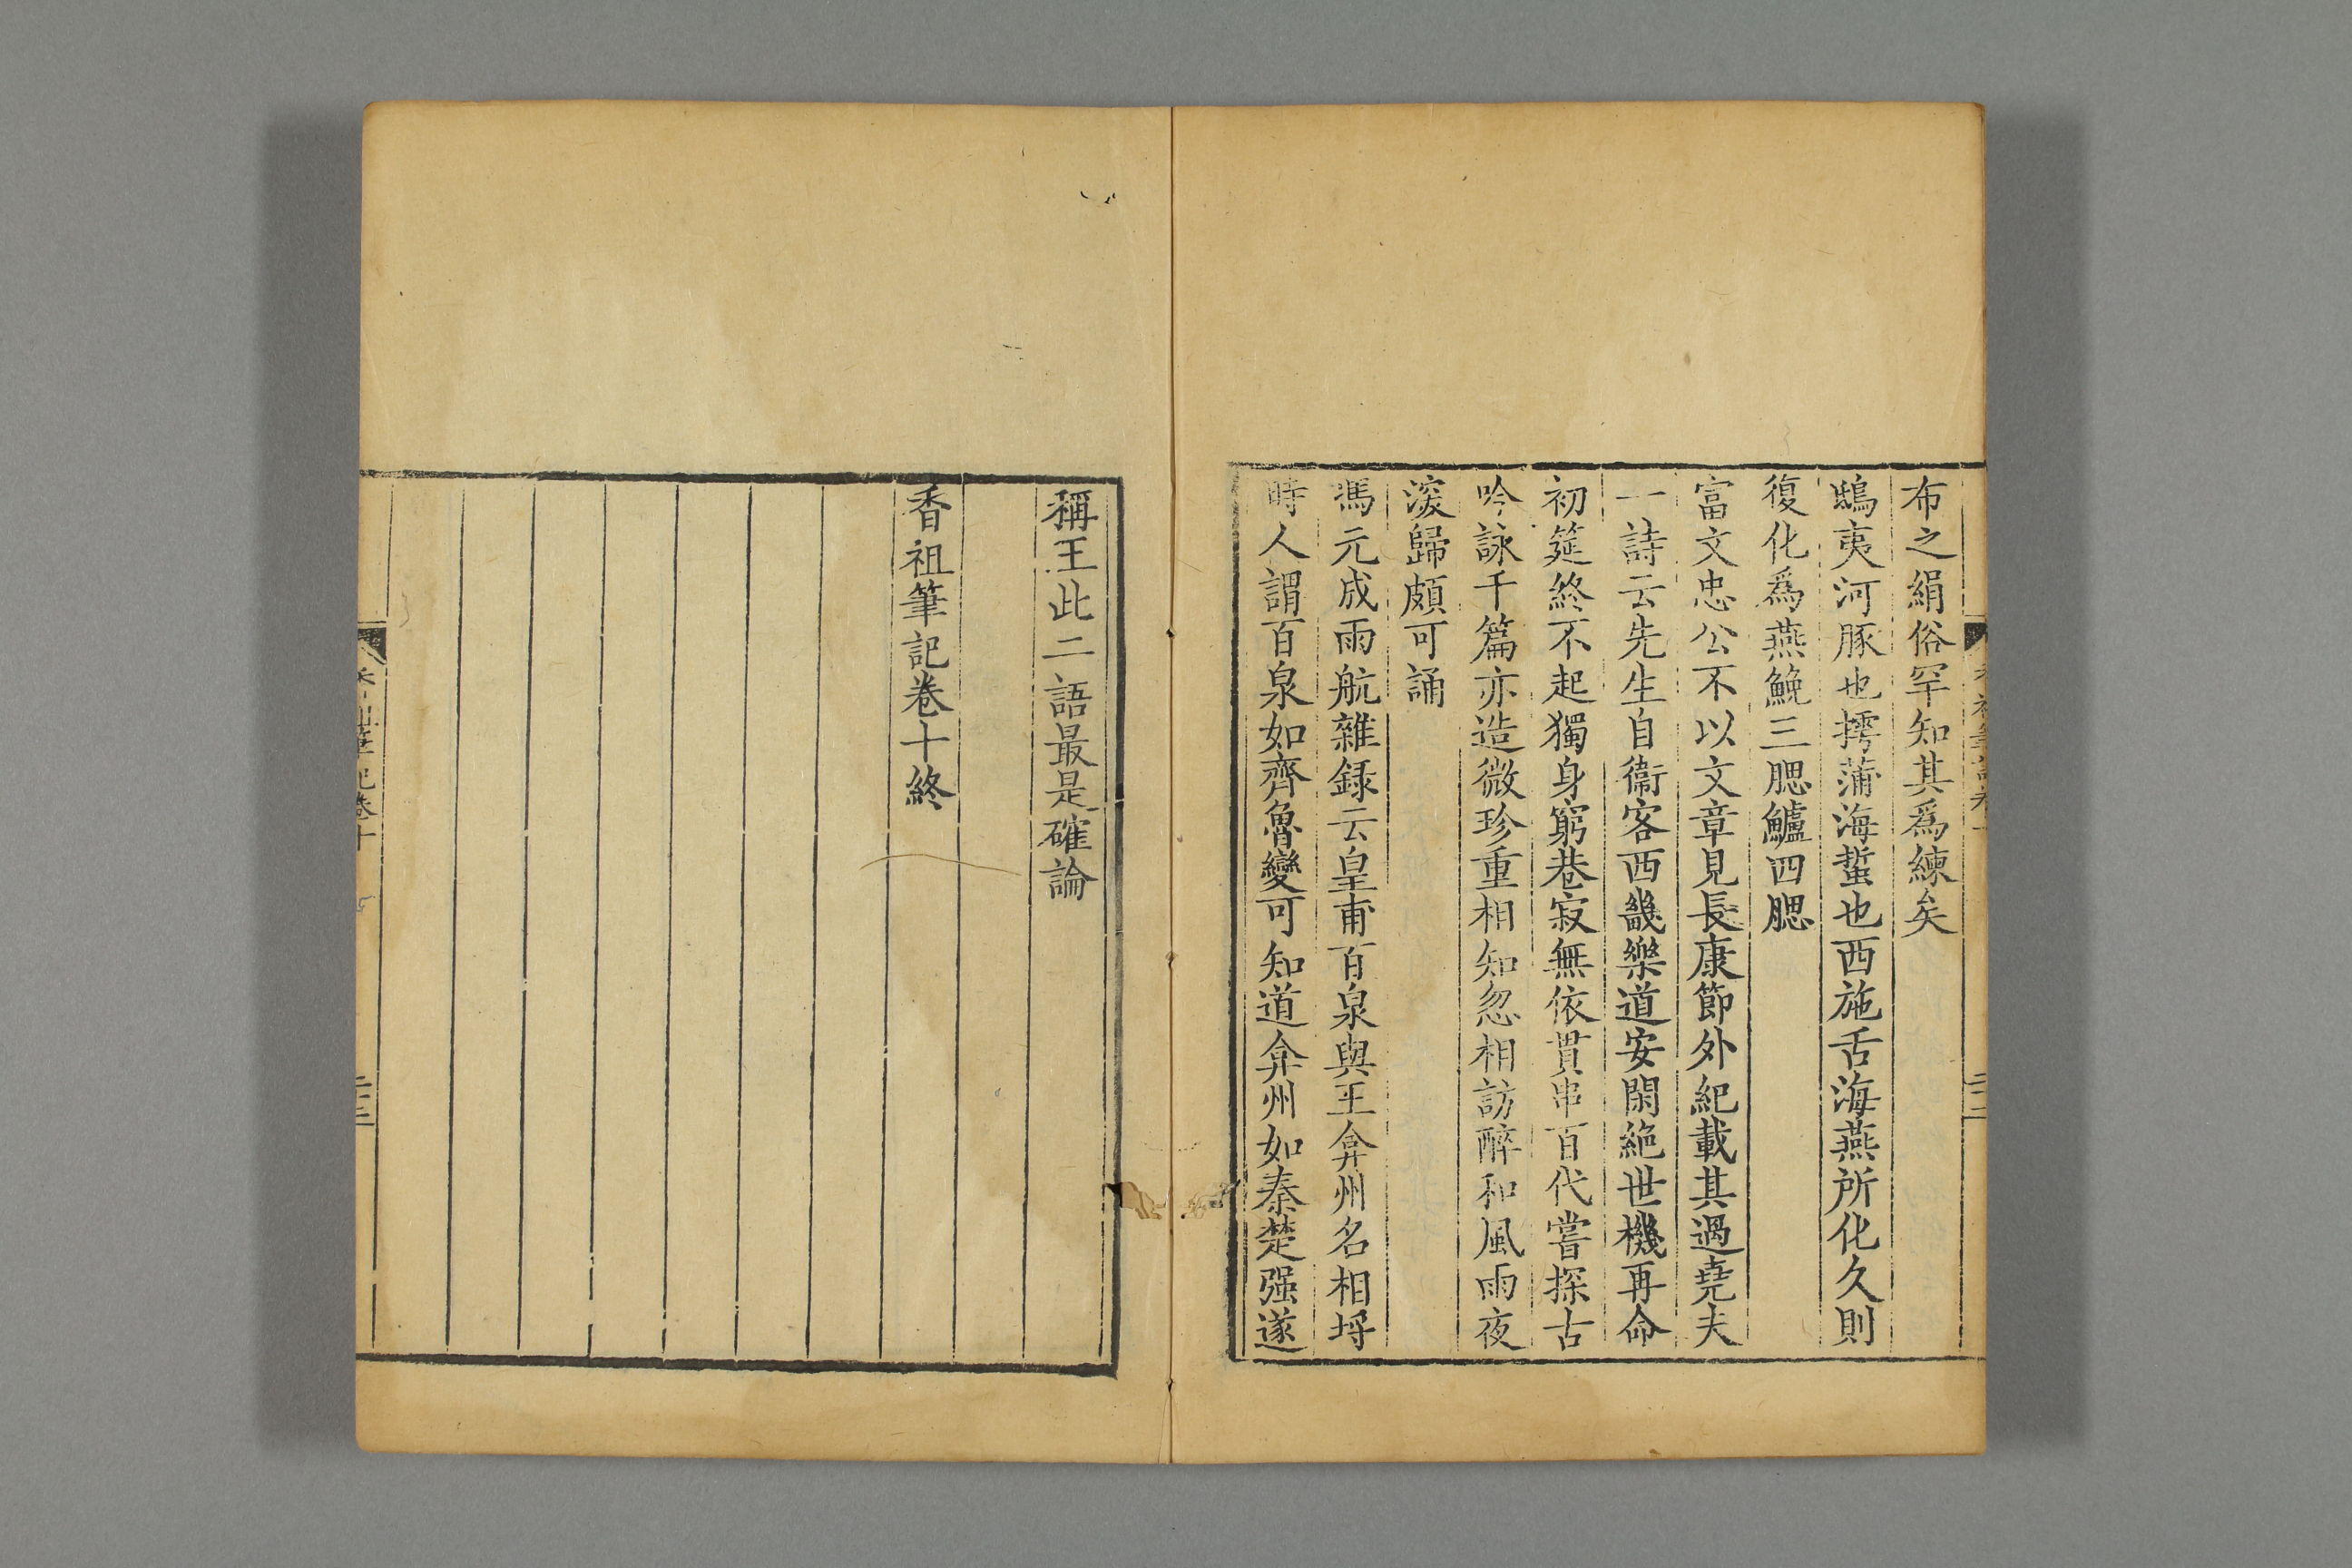 布之絹俗罕知其爲練矣
鴟夷河豚也摴蒲海蜇也西施舌海燕所化久則
復化爲燕鮸三腮鱸四腮
富文忠公不以文章見長康節外紀載其過堯夫
一詩云先生自衞客西畿樂道安閑絶世機再命
初筵終不起獨身窮巷寂無依貫串百代嘗探古
吟詠千篇亦造微珍重相知忽相訪醉和風雨夜
深歸頗可誦
馮元成雨航雜録云皇甫百泉與王弇州名相埒
時人謂百泉如齊魯變可知道弇州如秦楚强遂
稱王此二語最是確論
香祖筆記卷十終
香祖筆記卷十
二十三